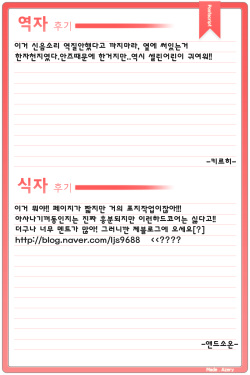 Postscript
역자 후기
이거 신음소리 역질안했다고 까지마라, 옆에 써있는거
한자천지였다.안즈때문에 한거지만..역시 셀린어린이 귀여워!!
-키르히-
식자 후기
이거 뭐야!! 페이지가 짧지만 거의 표지작업이잖아!!!
아사나기꺼동인지는 진짜 흥분되지만 이런하드코어는 싫다고!!
더구나 너무 멘트가 많아! 그러니깐 제블로그에 오세요[?]
http://blog.naver.com/ljs9688 <<????
-앤드소운-